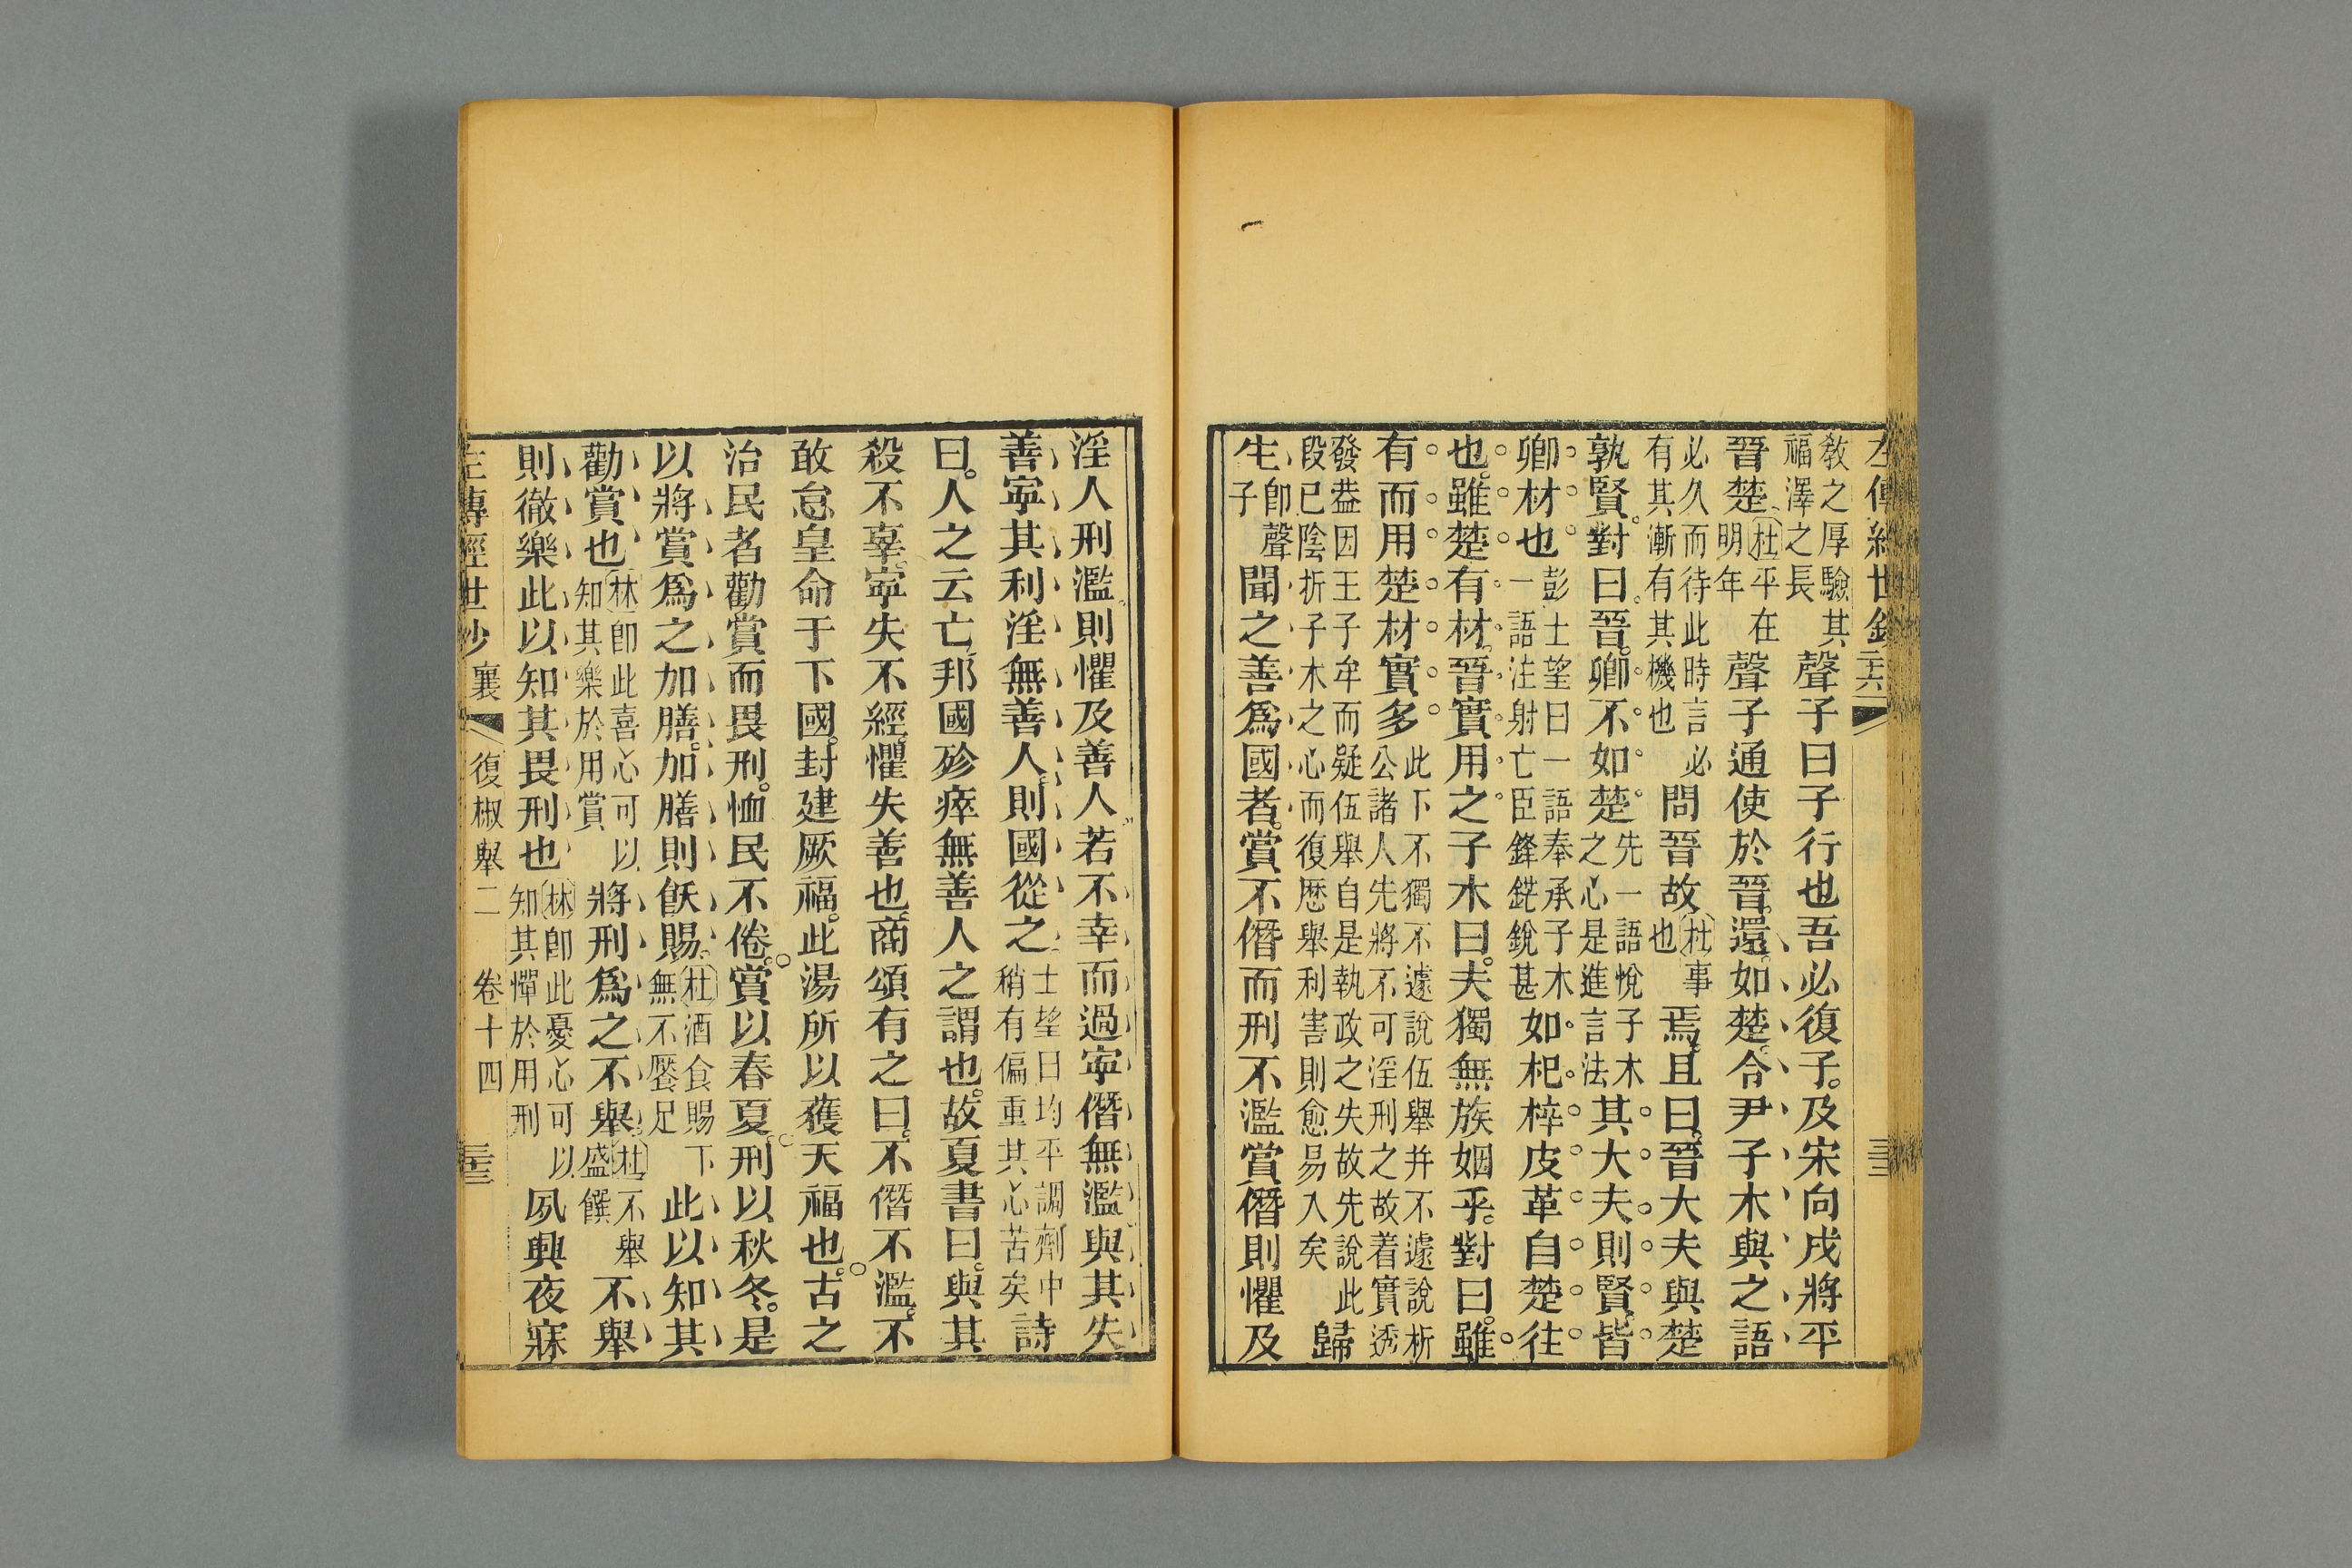 敎之厚驗其福澤之長聲子曰子行也吾必復子及宋向戌將平
晉楚杜平在明年聲子通使於晉還如楚令尹子木與之語
必久而待此時言必有其漸有其機也問晉故杜事也焉且曰晉大夫與楚
孰賢對曰晉卿不如楚先一語悅子木之心是進言法其大夫則賢皆
卿材也彭士望曰一語奉承子木一語注射亡臣鋒鋩銳甚如杞梓皮革自楚往
也雖楚有材晉實用之子木曰夫獨無族姻乎對曰雖
有而用楚材實多此下不獨不遽說伍舉并不遽說析公諸人先將不可淫刑之故着實透
發葢因王子牟而疑伍舉自是執政之失故先說此段已陰折子木之心而復歷舉利害則愈易入矣歸
生卽聲子聞之善爲國者賞不僭而刑不濫賞僭則懼及
淫人刑濫則懼及善人若不幸而過寧僭無濫與其失
善寧其利淫無善人則國從之士望曰均平調劑中稍有偏重其心苦矣詩
曰人之云亡邦國殄瘁無善人之謂也故夏書曰與其
殺不辜寧失不經懼失善也商頌有之曰不僭不濫不
敢怠皇命于下國封建厥福此湯所以獲天福也古之
治民者勸賞而畏刑恤民不倦賞以春夏刑以秋冬是
以將賞爲之加膳加膳則飫賜杜酒食賜下無不饜足此以知其
勸賞也林卽此喜心可以知其樂於用賞將刑爲之不舉杜不舉盛饌不舉
則徹樂此以知其畏刑也林卽此憂心可以知其憚於用刑夙興夜寐
左傳經世鈔 襄 復椒舉二 卷十四 三十三